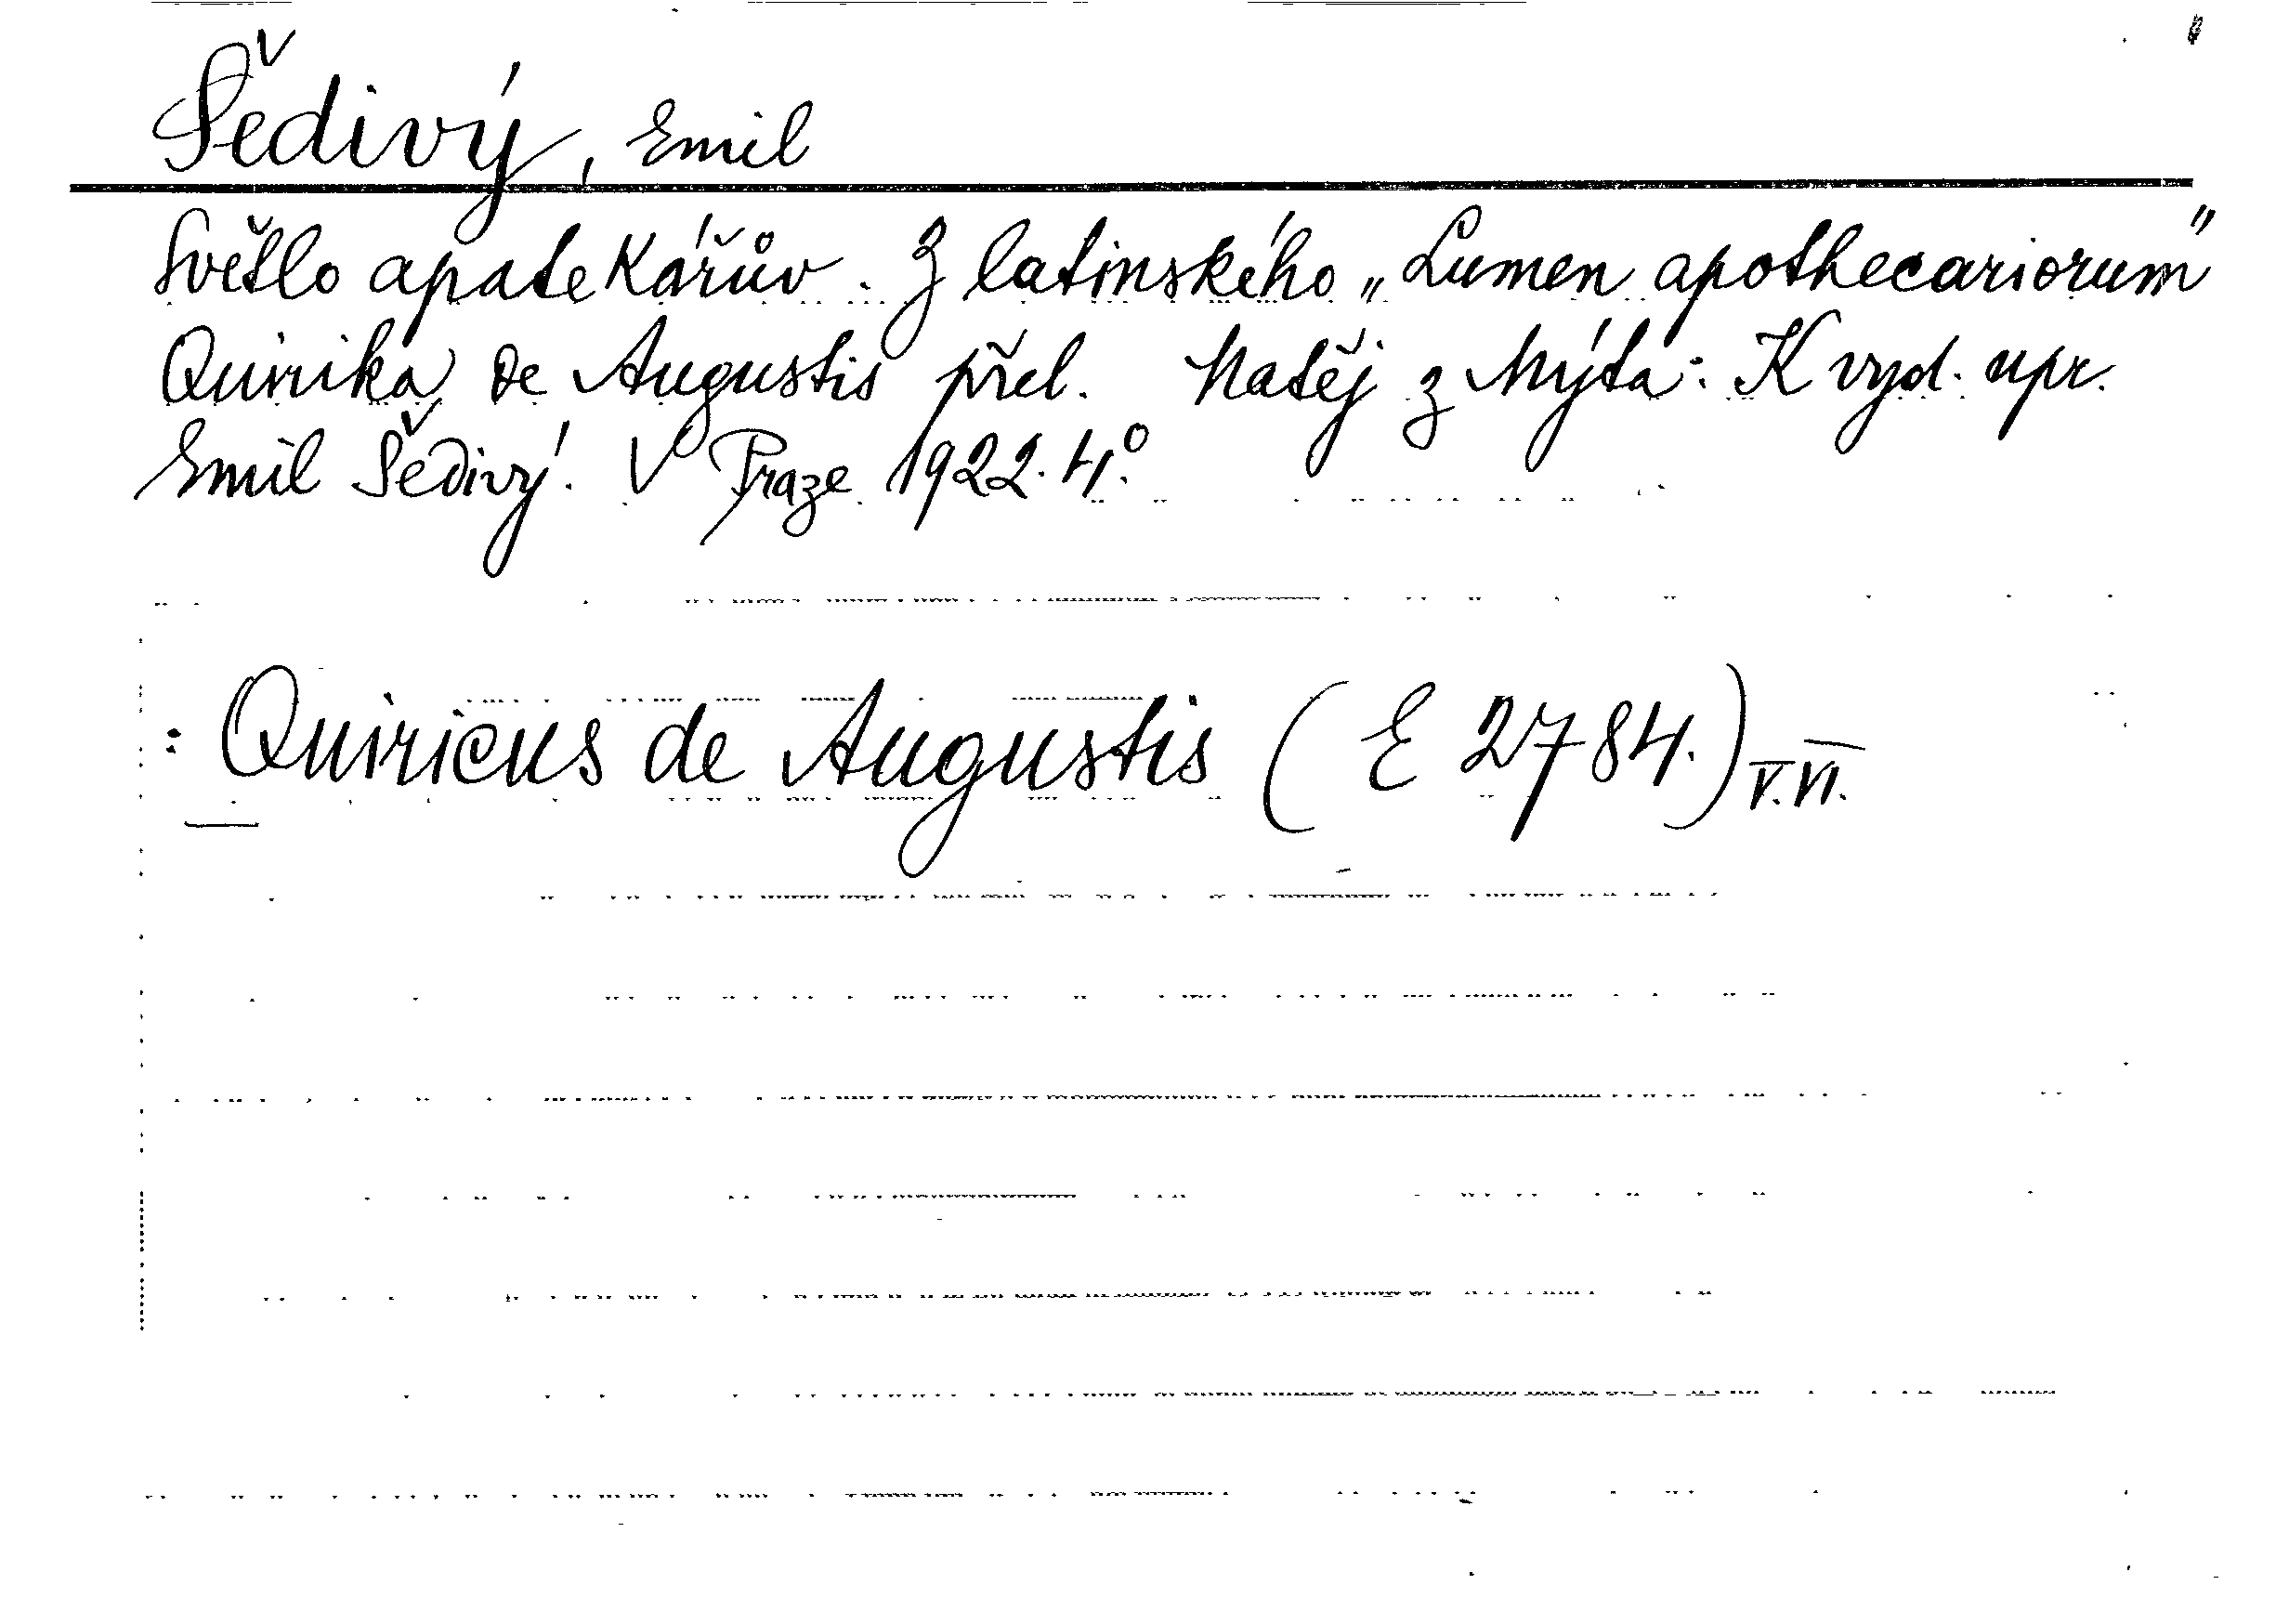 Šedivý, Emil
Světlo apatekářův. Z latinského „Lumen apothecariorum"
Quirika de Augustis přel. Matěj z Mýta: K vyd. upr.
Emil Šedivý. V Praze 1922. 4°.
: Quiricus de Augustis (E 2784.) V.VI.